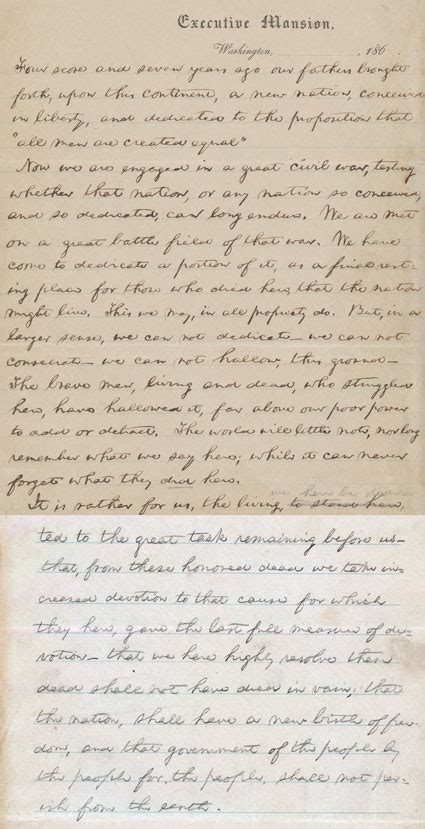 Executive Mansion,
Washington, , 186
Four score and seven years ago our fathers brought
forth, upon this continent, a new nation, conceived
in liberty, and dedicated to the proposition that
"all men are created equal"
Now we are engaged in a great civil war, testing
whether that nation, or any nation so conceived,
and so dedicated, can long endure. We are met
on a great battle field of that war. We have
come to dedicate a portion of it, as a final rest-
ing place for those who died here, that the nation
might live. This we may, in all propriety do. But, in a
larger sense, we can not dedicate — we can not
consecrate — we can not hallow, this ground —
The brave men, living and dead, who struggled
here, have hallowed it, far above our poor power
to add or detract. The world will little note, nor long
remember what we say here; while it can never
forget what they did here.
we here be dedica-
It is rather for us, the living, to stand here,
ted to the great task remaining before us —
that, from these honored dead we take in-
creased devotion to that cause for which
they here, gave the last full measure of de-
votion — that we here highly resolve these
dead shall not have died in vain; that
the nation, shall have a new birth of free-
dom, and that government of the people by
the people for the people, shall not per-
ish from the earth.